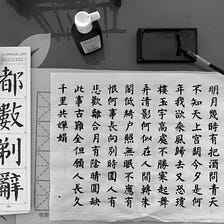 明月幾時有把酒問青天
不知天上宮闕今夕是何
年我欲乘風歸去又恐瓊
樓玉宇高處不勝寒起舞
弄清影何似在人間轉朱
閣低綺戶照無眠不應有
恨何事長向別時圓人有
悲歡離合月有陰晴圓缺
此事古難全但願人長久
千里共嬋娟
都數剃辭